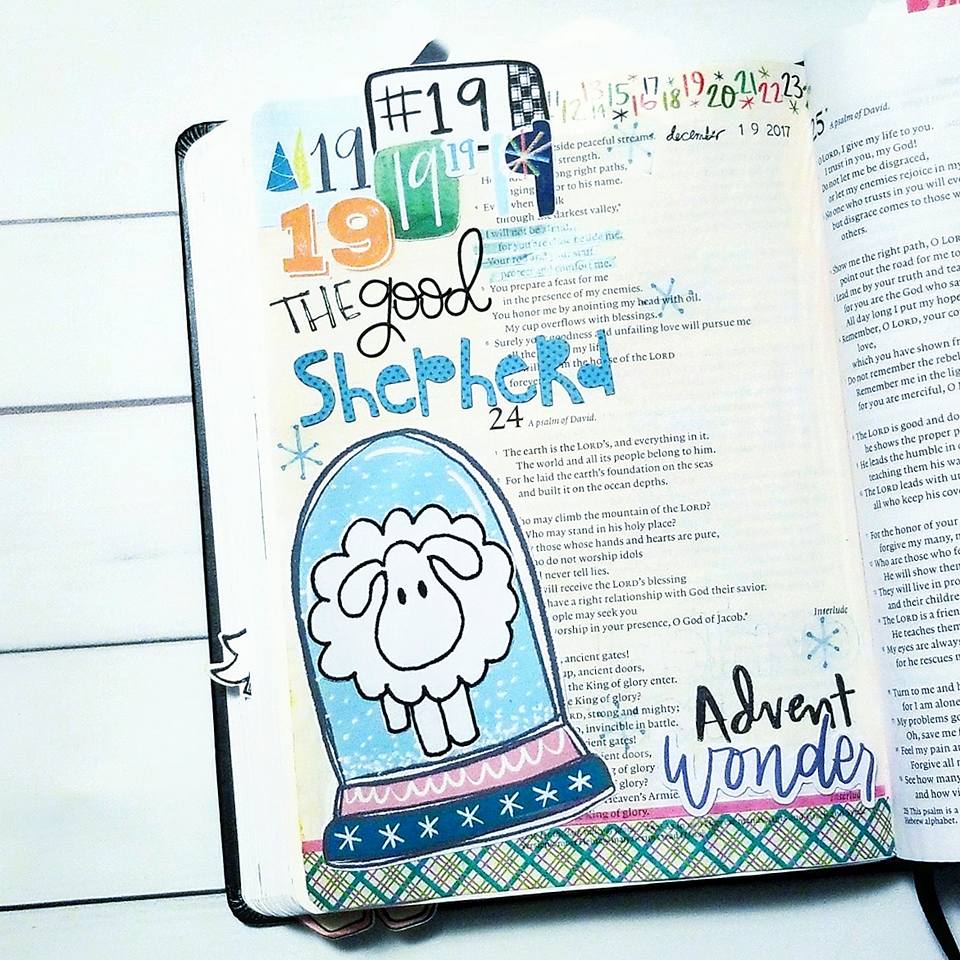 #19
11 12 13 14 15 16 17 18 19 20 21 22 23
december 19 2017
19
19
19
19
19
THE good
Shepherd
side peaceful streams.
strength.
right paths,
or to his name.
when
through darkest valley,
I will not be afraid,
for you are close beside me.
Your rod and your staff
protect and comfort me.
5 You prepare a feast for me
in the presence of my enemies.
You honor me by anointing my head with oil.
My cup overflows with blessings.
6 Surely your goodness and unfailing love will pursue me
all the my life,
will in the house of the LORD
forever.
24 A psalm of David.
1 The earth is the LORD's, and everything in it.
The world and all its people belong to him.
2 For he laid the earth's foundation on the seas
and built it on the ocean depths.
who may climb the mountain of the LORD?
Who may stand in his holy place?
those whose hands and hearts are pure,
who do not worship idols
tell lies.
will receive the LORD's blessing
have a right relationship with God their savior.
people may seek you
worship in your presence, O God of Jacob.
Interlude
ancient gates!
up, ancient doors,
the King of glory enter.
King of glory?
LORD, strong and mighty;
invincible in battle.
ancient gates!
ancient doors,
King of glory
of glory?
Heaven's Armies
King of glory.
Interlude
Advent
Wonder
25 A psalm of David.
O LORD, I give my life to you.
I trust in you, my God!
Do not let me be disgraced,
or let my enemies rejoice in my
No one who trusts in you will ever
but disgrace comes to those
others.
Show me the right path, O LORD
point out the road for me to
Lead me by your truth and teach
for you are the God who saves
All day long I put my hope
Remember, O LORD, your
love,
which you have shown from
Do not remember the rebellious
Remember me in the light
for you are merciful, O
The LORD is good and does
he shows the proper
He leads the humble in
teaching them his way
The LORD leads with
all who keep his covenant
For the honor of your
forgive my many,
Who are those who
He will show them
They will live in
and their children
The LORD is a friend
He teaches them
My eyes are always
for he rescues
Turn to me and
for I am alone
My problems go
Oh, save me
Feel my pain
Forgive all
See how many
and how
25 This psalm is a
Hebrew alphabet.